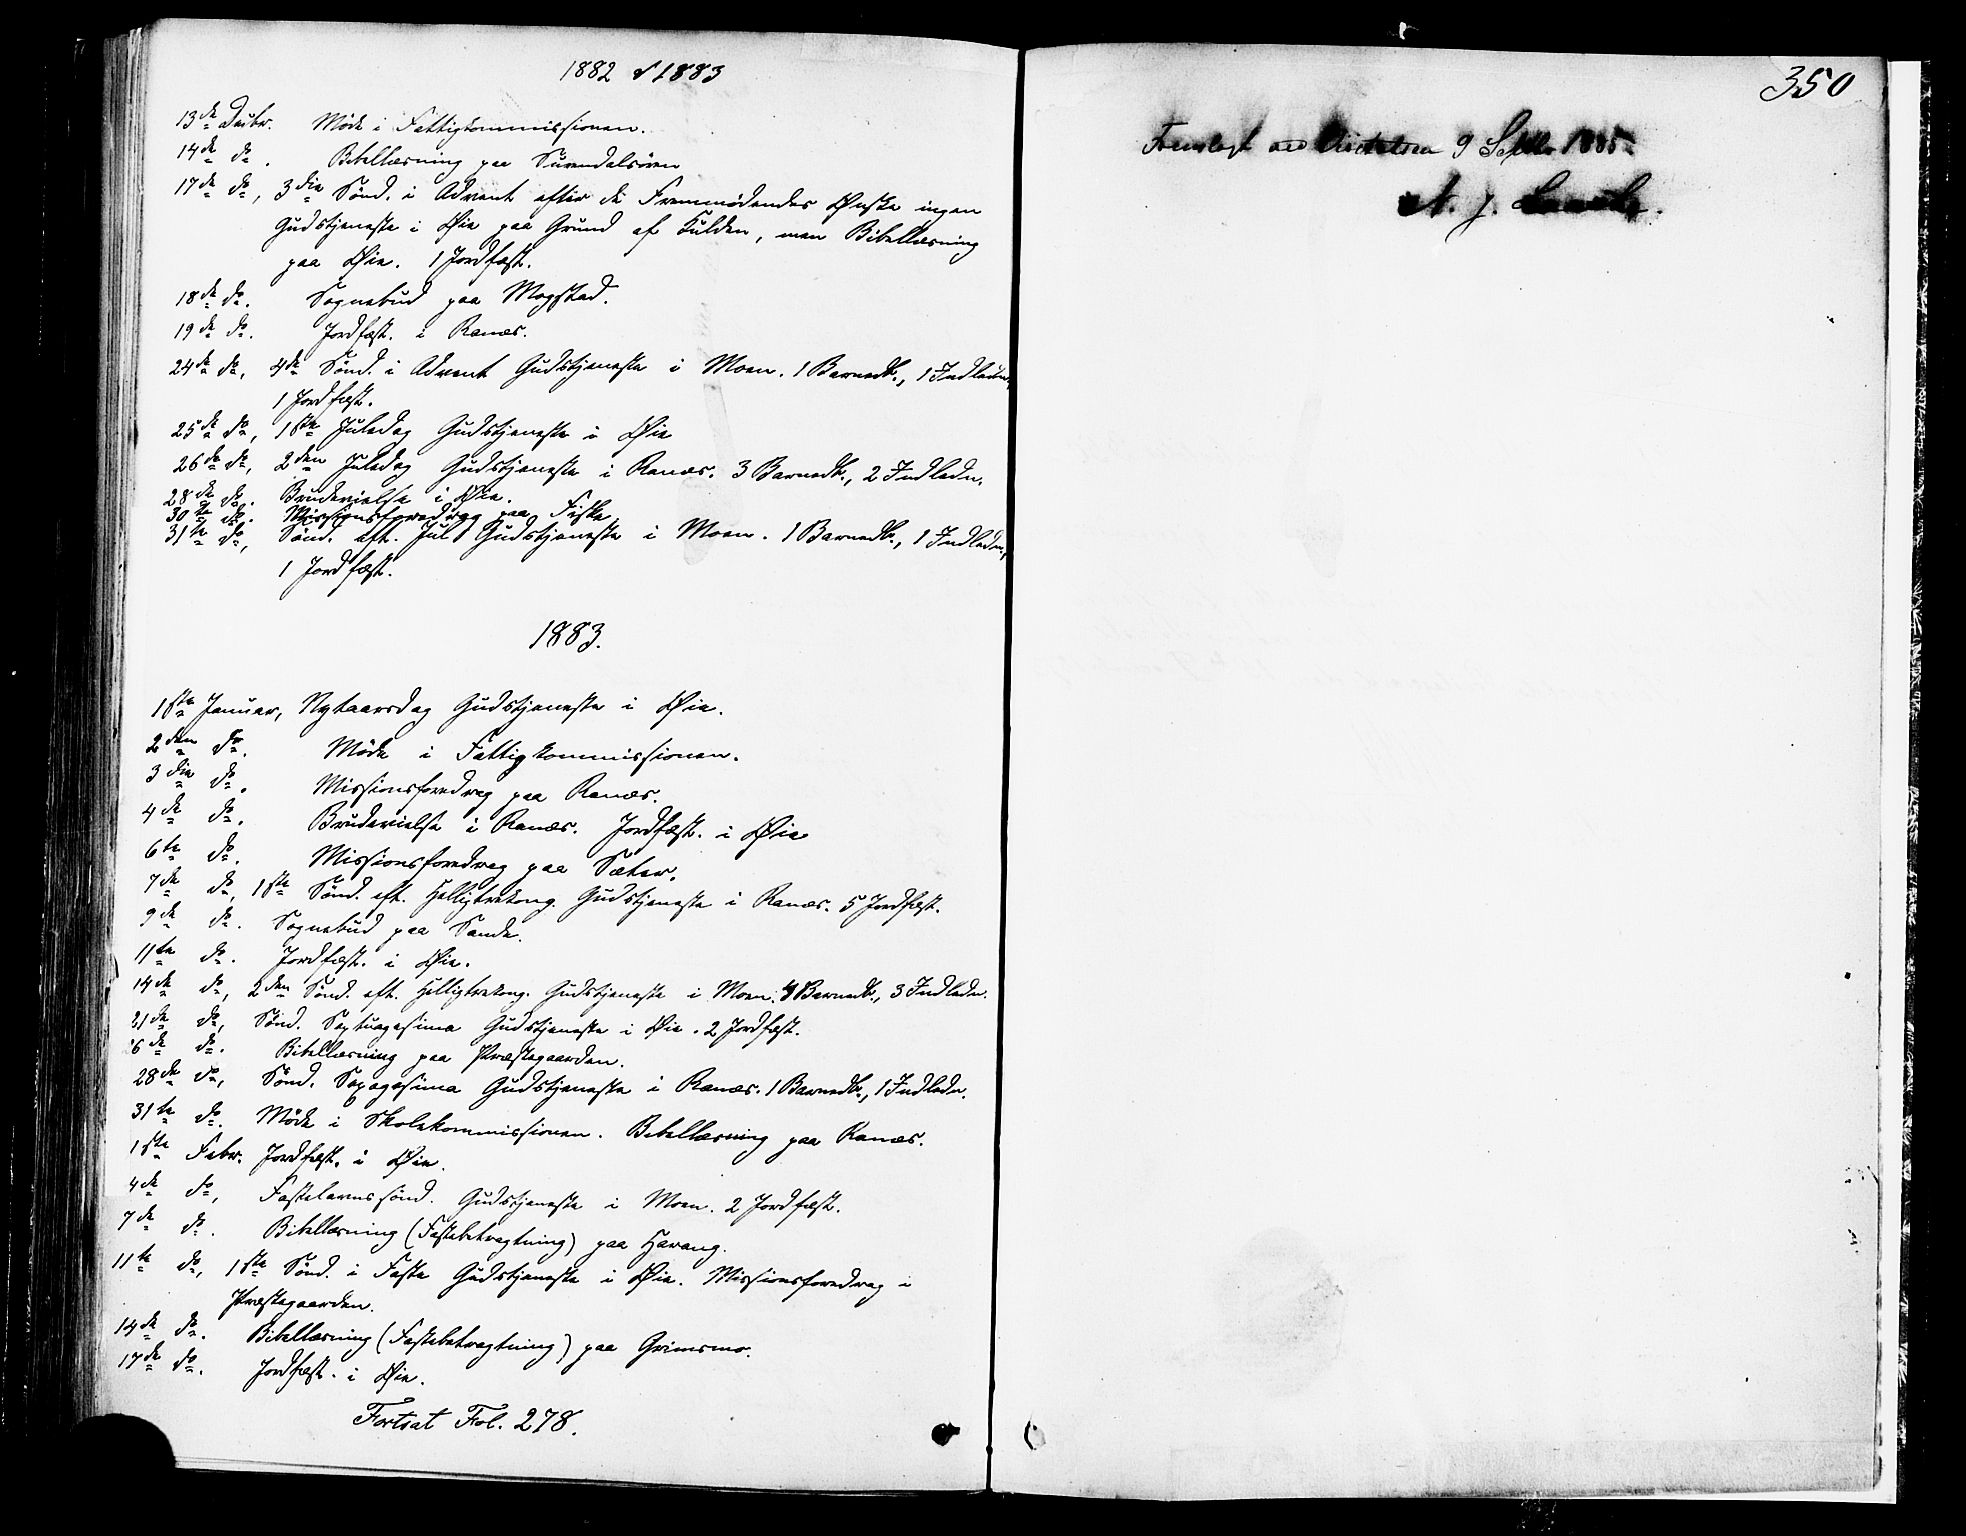 1882 & 1883
13de Decbr. Möde i Fattigkommissionen.
14de do. Bibellæsning paa Surendalsören
17de do, 3die Sönd. i Advent efter de Fremmödendes Ønske ingen
Gudstjeneste i Øie paa Grund af Kulden, men Bibellæsning
paa Øie. 1 Jordfæst.
18de do. Sognebud paa Mogstad.
19de do. Jordfæst. i Ranæs.
24de do, 4de Sönd. i Advent Gudstjeneste i Moen. 1 Barnedb., 1 Indledn.,
1 Jordfæst.
25de do, 1ste Juledag Gudstjeneste i Øie
26de do, 2den Juledag Gudstjeneste i Ranæs. 3 Barnedb., 2 Indledn.
28de do. Brudevielse i Øie.
30te do. Missionsforedrag paa Fiske
31te do, Sönd. eft. Jul Gudstjeneste i Moen. 1 Barnedb., 1 Indledn.,
1 Jordfæst.
1883.
1ste Januar, Nytaarsdag Gudstjeneste i Øie.
2den do. Möde i Fattigkommissionen.
3die do. Missionsforedrag paa Ranæs.
4de do. Brudevielse i Ranæs. Jordfæst. i Øie
6te do. Missionsforedrag paa Sæter.
7de do, 1ste Sönd. eft. Helligtrekong. Gudstjeneste i Ranæs. 5 Jordfæst.
9de do. Sognebud paa Sande.
11te do. Jordfæst. i Øie.
14de do, 2den Sönd. eft. Helligtrekong. Gudstjeneste i Moen. 4 Barnedb., 3 Indledn.
21de do, Sönd. Septuagesima Gudstjeneste i Øie. 2 Jordfæst.
6de do. Bibellæsning paa Præstegaarden.
28de do, Sönd. Sexagesima Gudstjeneste i Ranæs. 1 Barnedb., 1 Indledn.
31te do. Möde i Skolekommissionen. Bibellæsning paa Ranæs.
1ste Febr. Jordfæst. i Øie.
4de do, Fastelavnssönd. Gudstjeneste i Moen. 2 Jordfæst.
7de do. Bibellæsning (Fastebetragtning) paa Harang.
11te do, 1ste Sönd. i Faste Gudstjeneste i Øie. Missionsforedrag i
Præstegaarden.
14de do. Bibellæsning (Fastebetragtning) paa Grimsmo.
17de do. Jordfæst. i Øie.
Fortsat Fol. 278.
350
Fremlagt ved Visitatsen 9 Septbr 1885.
A. J.